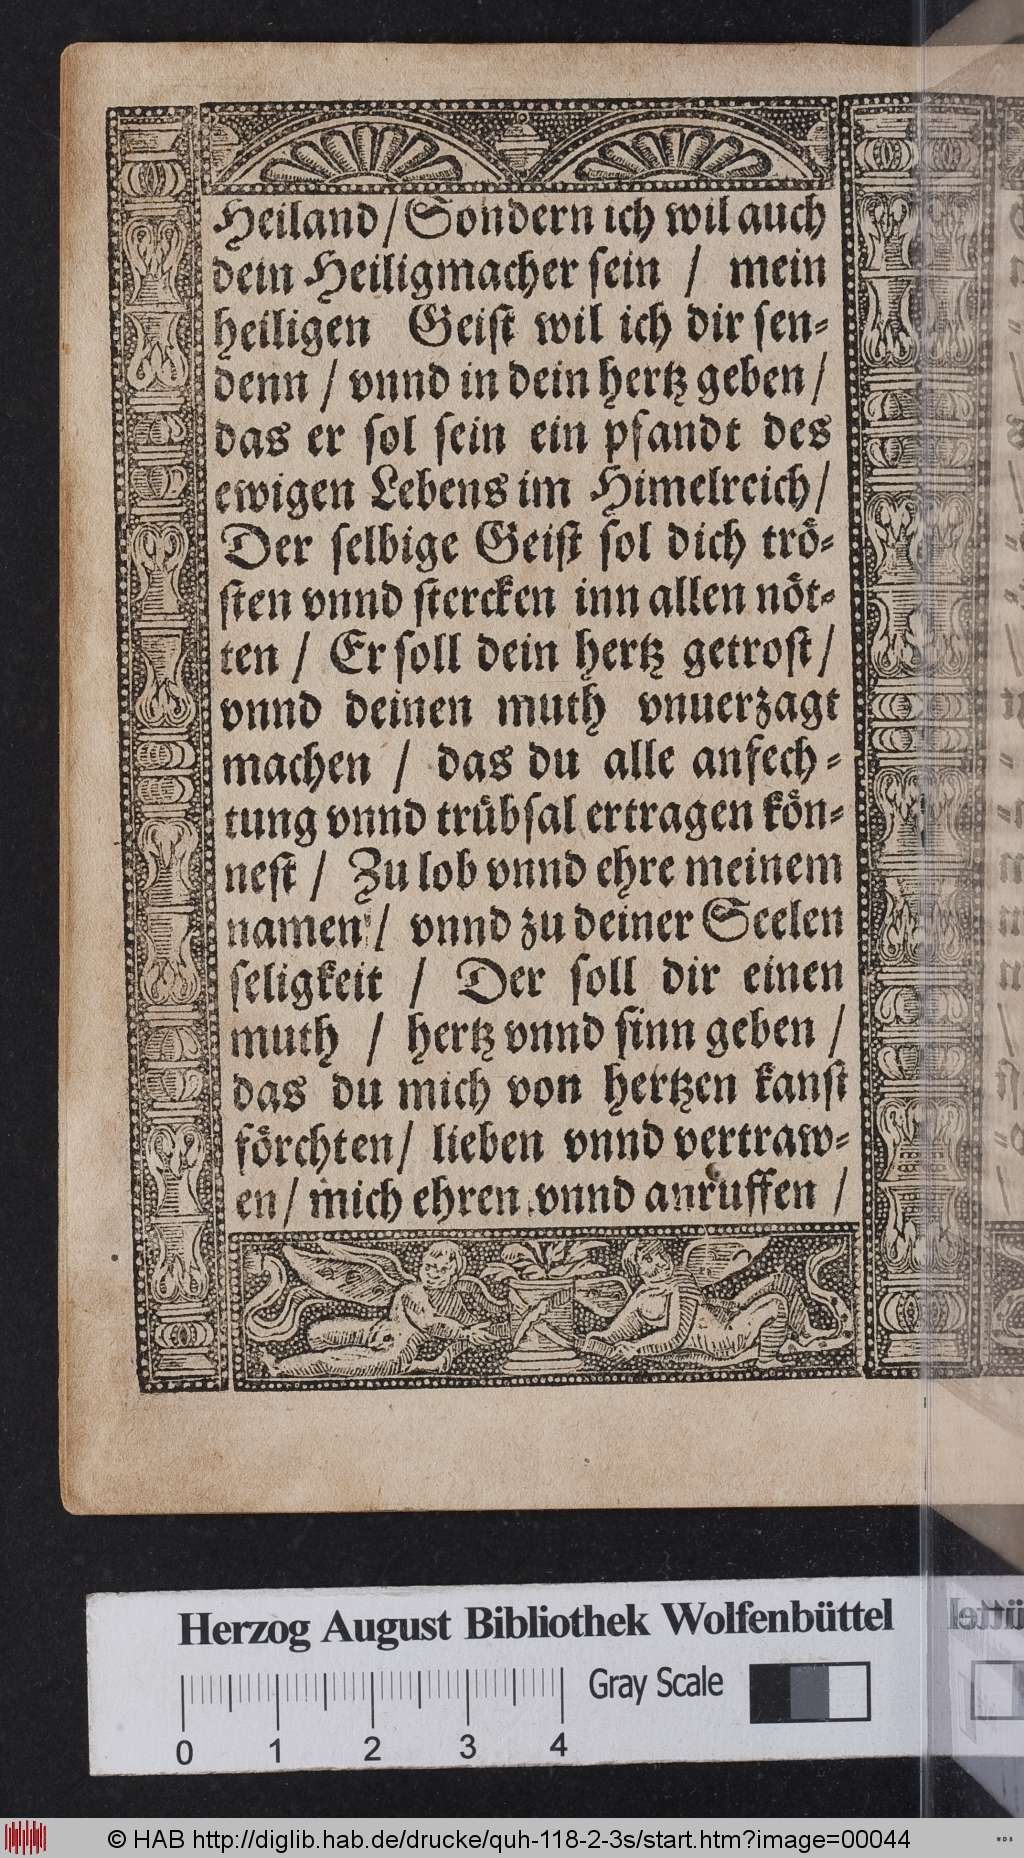 Heiland / Sondern ich wil auch
dein Heiligmacher sein / mein
heiligen Geist wil ich dir sen⸗
denn / vnnd in dein hertz geben /
das er sol sein ein pfandt des
ewigen Lebens im Himelreich /
Der selbige Geist sol dich trö⸗
sten vnnd stercken inn allen nöt⸗
ten / Er soll dein hertz getrost /
vnnd deinen muth vnuerzagt
machen / das du alle anfech⸗
tung vnnd trübsal ertragen kön⸗
nest / Zu lob vnnd ehre meinem
namen / vnnd zu deiner Seelen
seligkeit / Der soll dir einen
muth / hertz vnnd sinn geben /
das du mich von hertzen kanst
förchten / lieben vnnd vertraw⸗
en / mich ehren vnnd anruffen /
Herzog August Bibliothek Wolfenbüttel
Gray Scale
0 1 2 3 4
© HAB http://diglib.hab.de/drucke/quh-118-2-3s/start.htm?image=00044